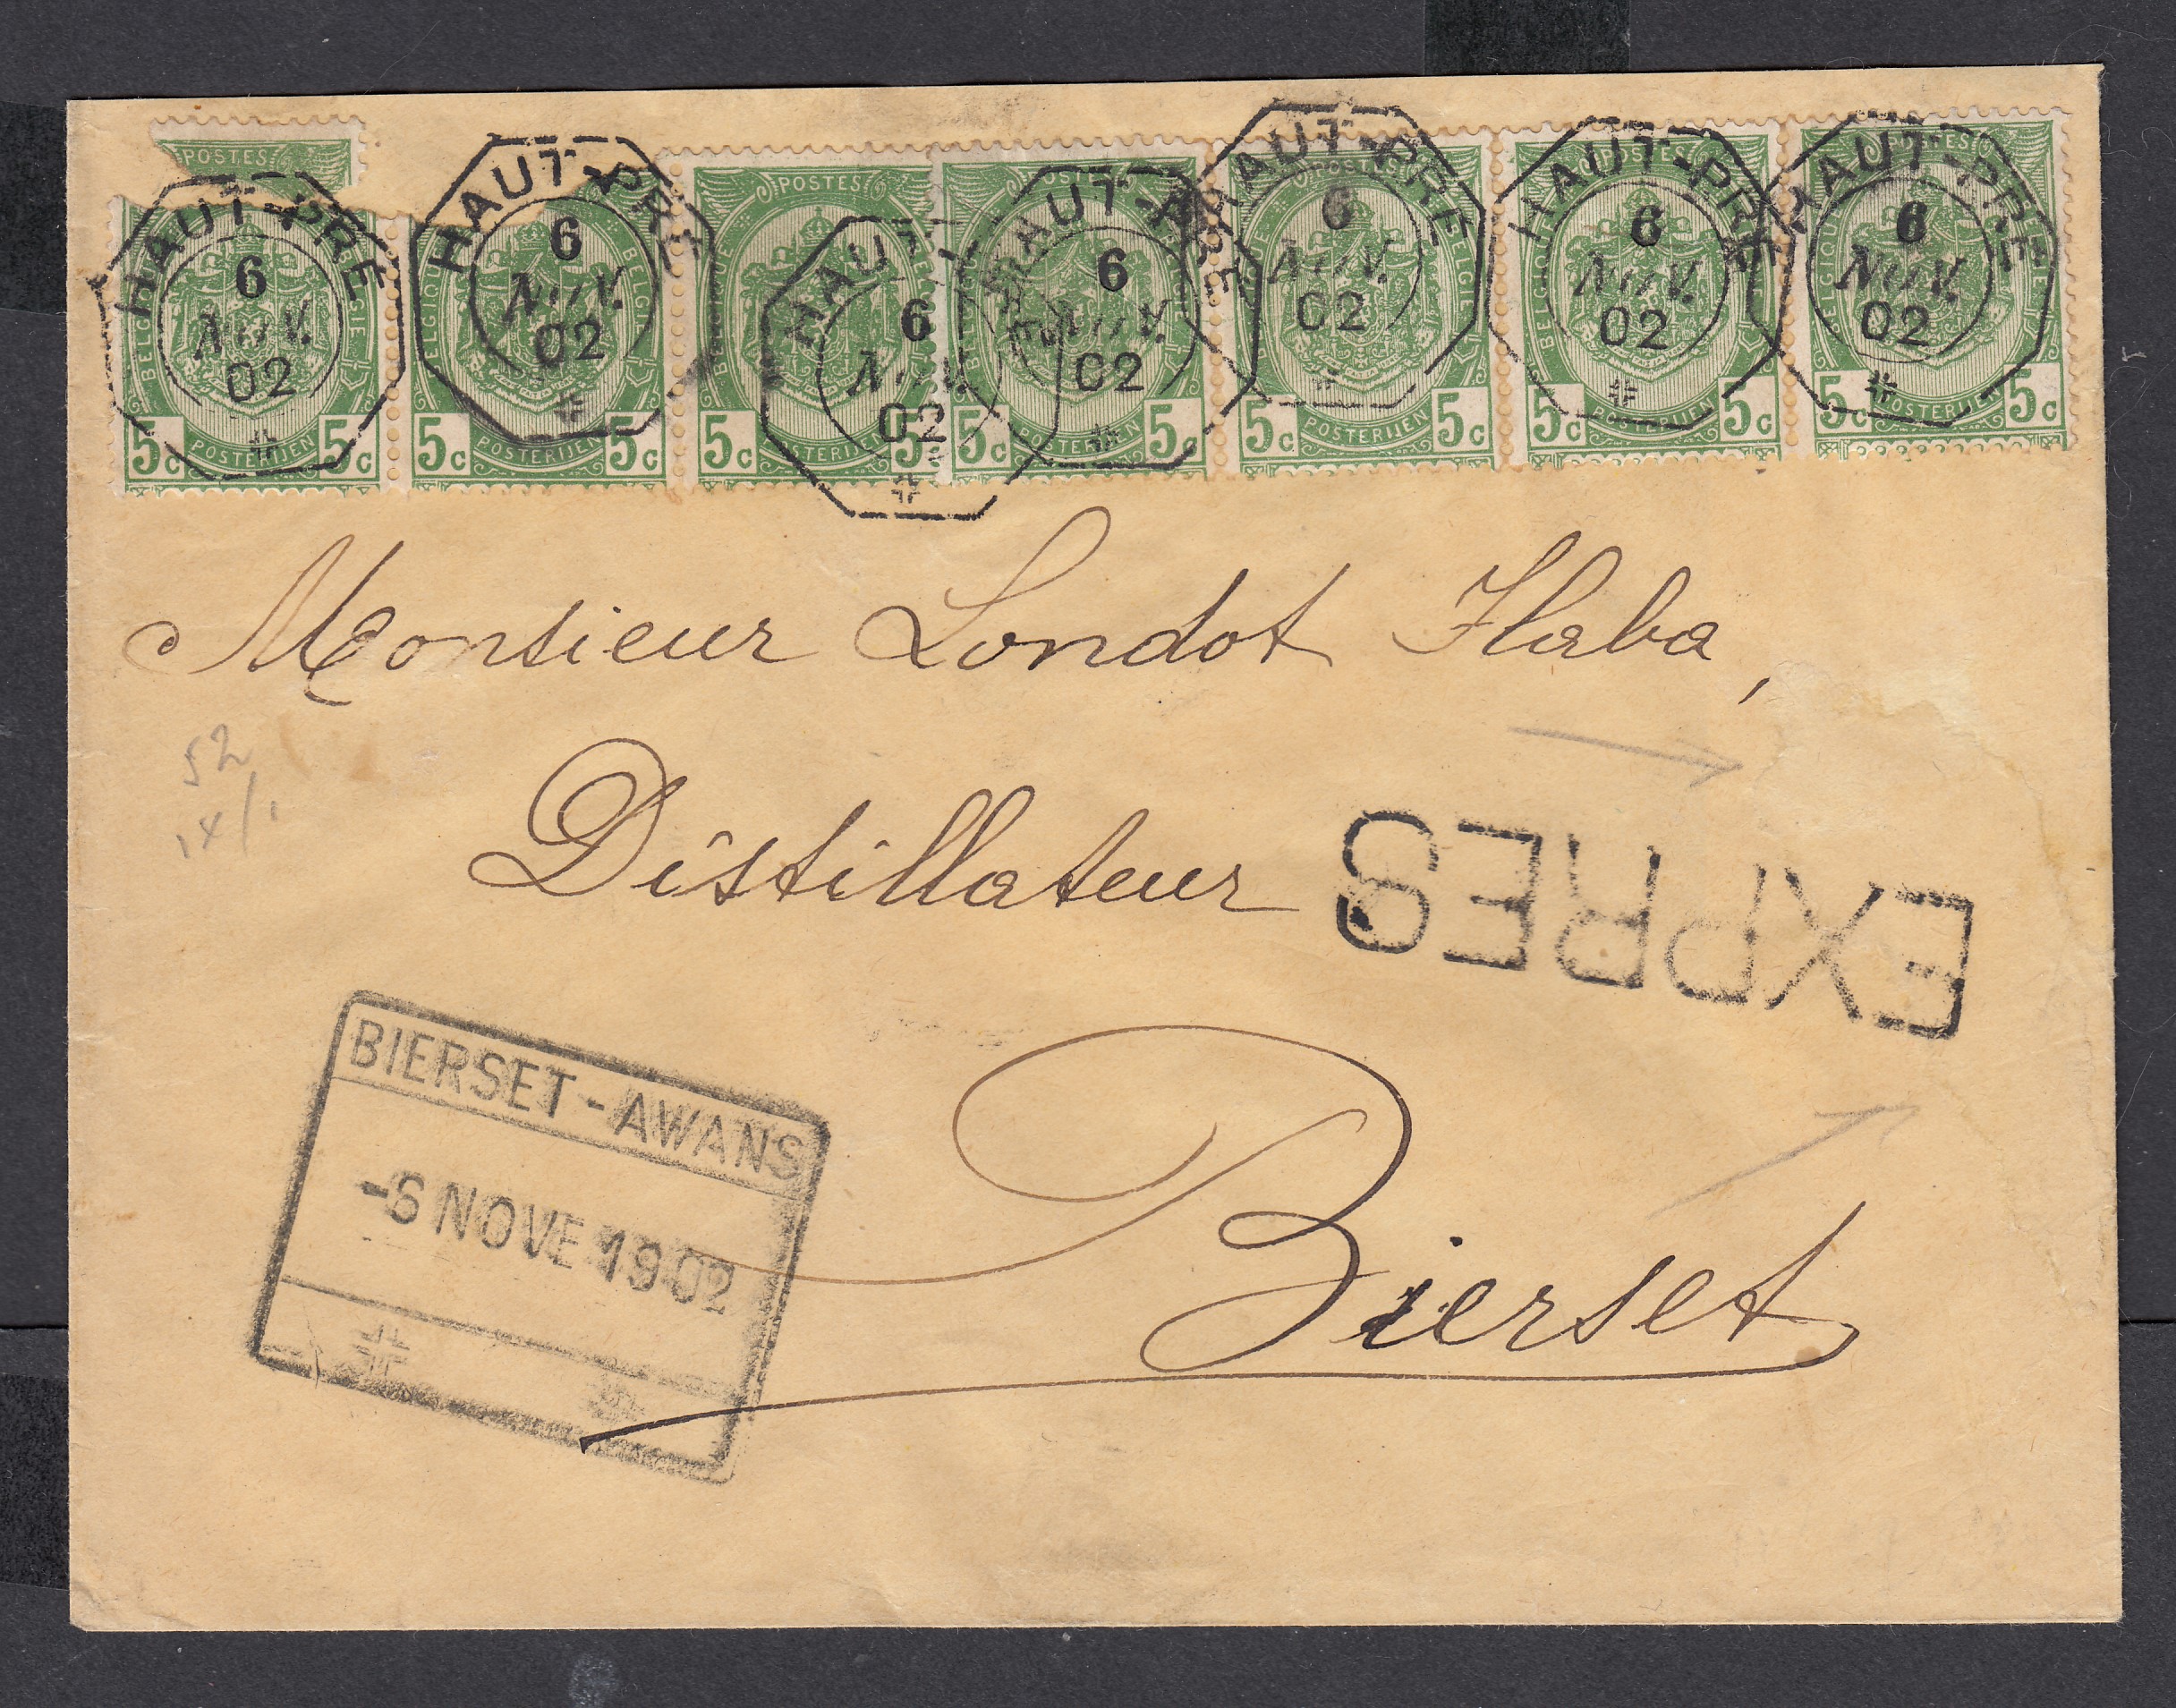 POSTES POSTES POSTES POSTES POSTES POSTES
HAUT-PRÉ HAUT-PRÉ HAUT-PRÉ HAUT-PRÉ HAUT-PRÉ HAUT-PRÉ HAUT-PRÉ
6 6 6 6 6 6 6
NOV. NOV. NOV. NOV. NOV. NOV. NOV.
02 02 02 02 02 02 02
BELGIQUE BELGIË BELGIQUE BELGIË BELGIQUE BELGIË BELGIQUE BELGIË BELGIQUE BELGIË BELGIQUE BELGIË BELGIQUE BELGIË
5c POSTERIJEN 5c 5c POSTERIJEN 5c 5c POSTERIJEN 5c 5c POSTERIJEN 5c 5c POSTERIJEN 5c 5c POSTERIJEN 5c 5c POSTERIJEN 5c
Monsieur Londot Haba,
52
Distillateur
EXPRES
BIERSET-AWANS
-6 NOVE 1902
Bierset